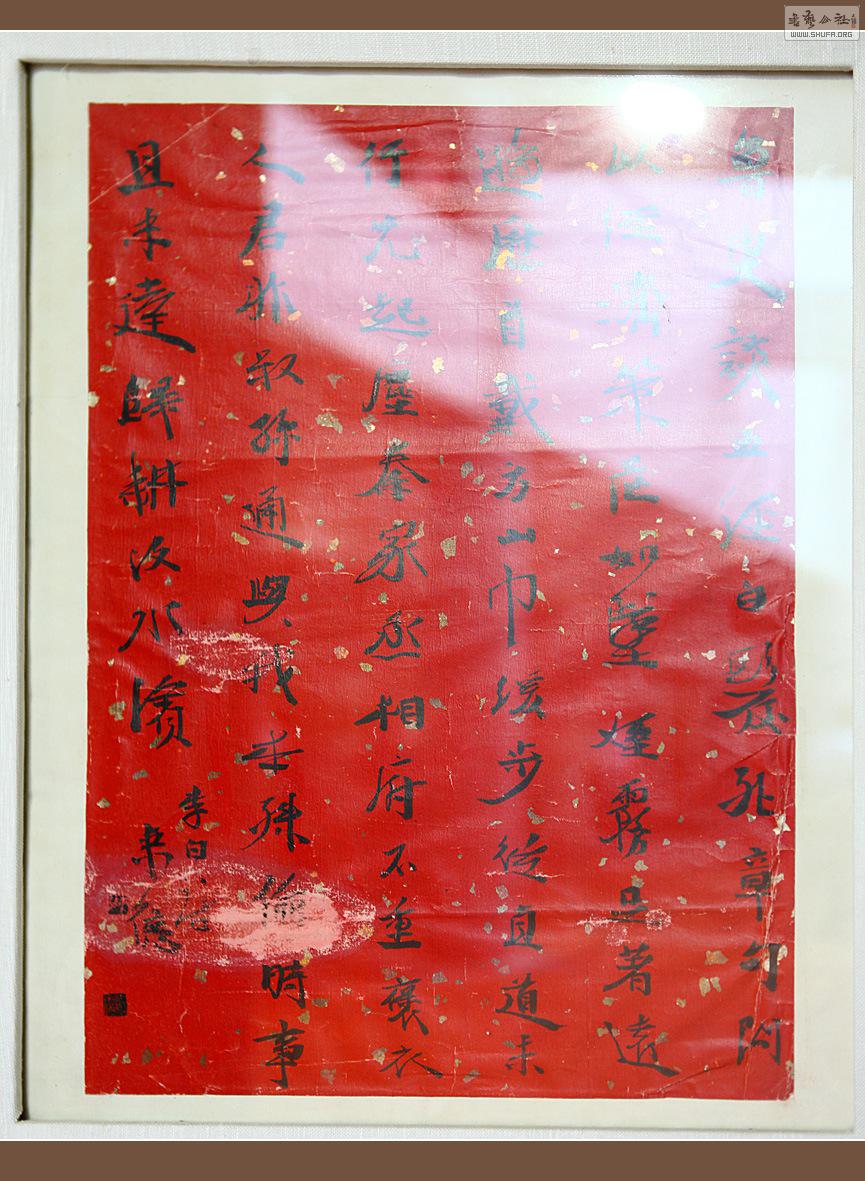 魯叟談五經白髮死章句問
以經濟策茫如墜煙霧足著遠
遊履首戴方山巾緩步從直道未
行先起塵秦家丞相府不重褒衣
人君非叔孫通與我本殊倫時事
且未達歸耕汶水濱
李白詩
来
書藝公社
WWW.SHUFA.ORG